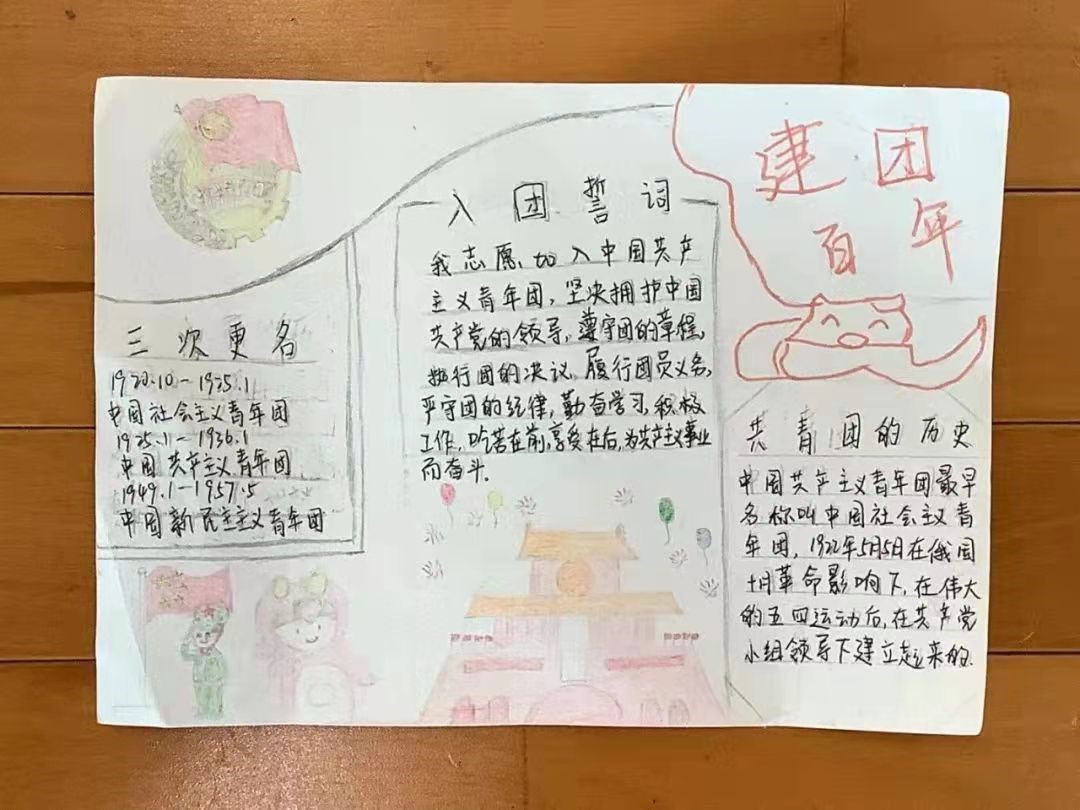 建团
百年
入团誓词
我志愿加入中国共产
主义青年团，坚决拥护中国
共产党的领导，遵守团的章程，
执行团的决议，履行团员义务，
严守团的纪律，勤奋学习，积极
工作，吃苦在前，享受在后，为共产主义事业
而奋斗.
三次更名
1920.10-1925.1
中国社会主义青年团
1925.1-1936.1
中国共产主义青年团
1949.1-1957.5
中国新民主主义青年团
共青团的历史
中国共产主义青年团最早
名称叫中国社会主义青
年团，1922年5月5日在俄国
十月革命影响下，在伟大
的五四运动后，在共产党
小组领导下建立起来的.